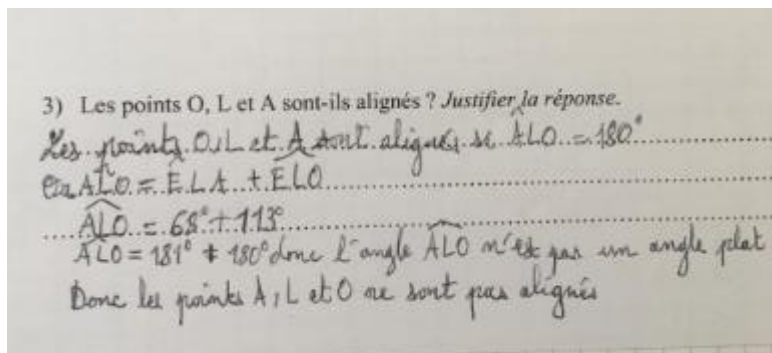 3) Les points O, L et A sont-ils alignés ? Justifier la réponse.
Les points O, L et A sont alignés si ALO = 180°
ALO = ELA + ELO
ALO = 68° + 113°
ALO = 181° ≠ 180° donc l'angle ALO n'est pas un angle plat
Donc les points A, L et O ne sont pas alignés